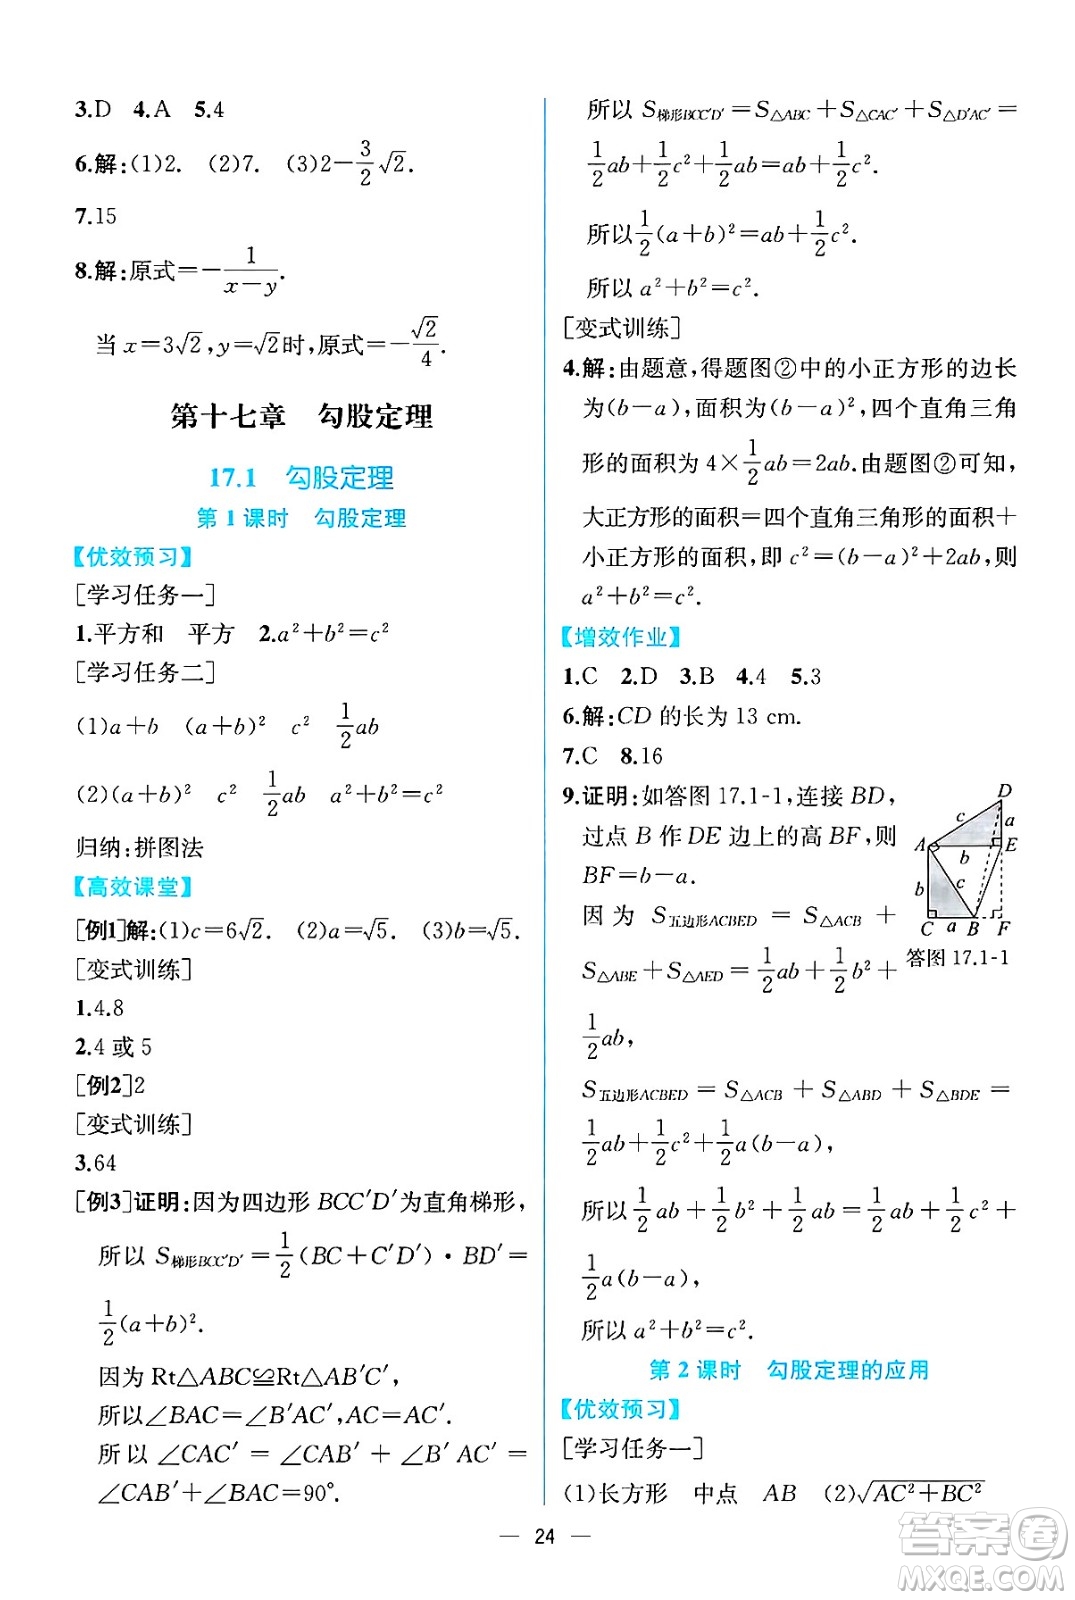 3.D 4.A 5.4
6.解:(1)2. (2)7. (3)2−$\frac{3}{2}\sqrt{2}$.
7.15
8.解:原式=−$\frac{1}{x-y}$.
当 x=3√2,y=√2时,原式=−$\frac{\sqrt{2}}{4}$.
第十七章 勾股定理
17.1 勾股定理
第 1 课时 勾股定理
【优效预习】
[学习任务一]
1.平方和 平方 2.a²+b²=c²
[学习任务二]
(1)a+b (a+b)² c² $\frac{1}{2}$ab
(2)(a+b)² c² $\frac{1}{2}$ab a²+b²=c²
归纳:拼图法
【高效课堂】
[例1]解:(1)c=6√2. (2)a=√5. (3)b=√5.
[变式训练]
1.4.8
2.4 或 5
[例2]2
[变式训练]
3.64
[例3]证明:因为四边形 BCC′D′为直角梯形,
所以 S梯形BCC′D′=$\frac{1}{2}$(BC+C′D′)·BD′=
$\frac{1}{2}$(a+b)².
因为 Rt△ABC≌Rt△AB′C′,
所以∠BAC=∠B′AC′.
所以 ∠CAC′ = ∠CAB′ + ∠B′AC′ =
∠CAB′+∠BAC=90°.
所以 S梯形BCC′D′=S△ABC+S△CAC′+S△D′AC′=
$\frac{1}{2}$ab+$\frac{1}{2}$c²+$\frac{1}{2}$ab=ab+$\frac{1}{2}$c².
所以$\frac{1}{2}$(a+b)²=ab+$\frac{1}{2}$c².
所以 a²+b²=c².
[变式训练]
4.解:由题意,得题图②中的小正方形的边长
为(b−a),面积为(b−a)²,四个直角三角
形的面积为 4×$\frac{1}{2}$ab=2ab.由题图②可知,
大正方形的面积=四个直角三角形的面积+
小正方形的面积,即 c²=(b−a)²+2ab,则
a²+b²=c².
【增效作业】
1.C 2.D 3.B 4.4 5.3
6.解:CD 的长为 13 cm.
7.C 8.16
9.证明:如答图 17.1-1,连接 BD,
过点 B 作 DE 边上的高 BF,则
BF=b−a.
D
c
a
A
E
b
b
c
C
a
B
F
答图 17.1-1
因为 S五边形ACBED = S△ACB +
S△ABE+S△AED=$\frac{1}{2}$ab+$\frac{1}{2}$b²+
$\frac{1}{2}$ab,
S五边形ACBED = S△ACB + S△ABD + S△BDE =
$\frac{1}{2}$ab+$\frac{1}{2}$c²+$\frac{1}{2}$a(b−a),
所以$\frac{1}{2}$ab+$\frac{1}{2}$b²+$\frac{1}{2}$ab=$\frac{1}{2}$ab+$\frac{1}{2}$c²+
$\frac{1}{2}$a(b−a),
所以 a²+b²=c².
第 2 课时 勾股定理的应用
【优效预习】
[学习任务一]
(1)长方形 中点 AB (2)$\sqrt{AC^2+BC^2}$
— 24 —
答案圈
MXQE.COM